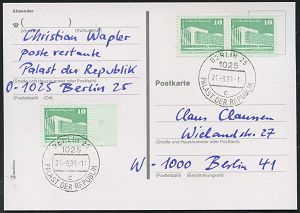 Absender
Christian Wagler
poste restante
Palast der Republik
(Straße und Hausnummer oder Postfach)
O-1025 Berlin 25
(Postleitzahl) (Ort)
10
10 10
BERLIN 25
1025
PALAST DER REPUBLIK
BERLIN 25
1025
c
PALAST DER REPUBLIK
Postkarte
Claus Clausen
(Straße und Hausnummer oder Postfach)
Wielandstr. 27
W-1000 Berlin 41
(Postleitzahl) (Bestimmungsort)